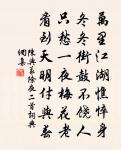 萬里江湖憔悴身
冬冬街鼓不饒人
只愁一夜梅花老
看到天明付與春
陳與義除夜二首詞典
網集